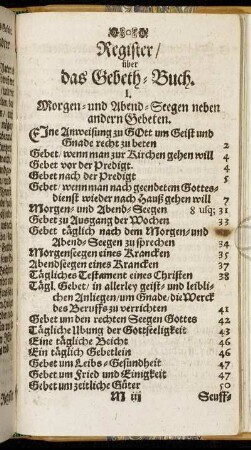 Register/
über
das Gebeth-Buch.
I.
Morgen-und Abend-Seegen neben
andern Gebeten.
EIne Anweisung zu GOtt um Geist und
Gnade recht zu beten 2
Gebet/ wenn man zur Kirchen gehen will 4
Gebet vor der Predigt. 4
Gebet nach der Predigt 5
Gebet/ wenn man nach geendetem Gottes-
dienst wieder nach Hauß gehen will 7
Morgen- und Abend-Seegen 8 usq; 31
Gebet zu Ausgang der Wochen 33
Gebet täglich nach dem Morgen-und
Abend-Seegen zu sprechen 34
Morgenseegen eines Krancken 35
Abendseegen eines Krancken 37
Tägliches Testament eines Christen 38
Tägl. Gebet/ in allerley geist- und leibli-
chen Anliegen/ um Gnade/ die Werck
des Beruffs zu verrichten 41
Gebet um den rechten Seegen Gottes 42
Tägliche Ubung der Gottseeligkeit 43
Eine tägliche Beicht 46
Ein täglich Gebetlein 46
Gebet um Leibs-Gesundheit 47
Gebet um Fried und Einigkeit 47
Gebet um zeitliche Güter 50
M iij Seuff-